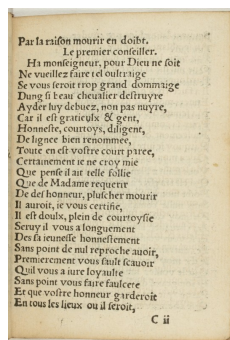 Par la raison mourir en doibt.
Le premier conseiller.
Ha monseigneur, pour Dieu ne soit
Ne vueillez faire tel oultraige
Se vous seroit trop grand dommaige
Dung si beau cheualier destruyre
Ayder luy debuez, non pas nuyre,
Car il est gratieulx & gent,
Honneste, courtoys, diligent,
De lignee bien renommee,
Toute en est vostre court paree,
Certainement ie ne croy mie
Que pense il ait telle follie
Que de Madame requerir
De des honneur, pluscher mourir
Il auroit, ie vous certifie,
Il est doulx, plein de courtoysie
Seruy il vous a longuement
Des sa ieunesse honnestement
Sans point de nul reproche auoir,
Premierement vous fault scauoir
Quil vous a iure loyaulte
Sans point vous faire faulcete
Et que vostre honneur garderoit
En tous les lieux ou il seroit,
C ii